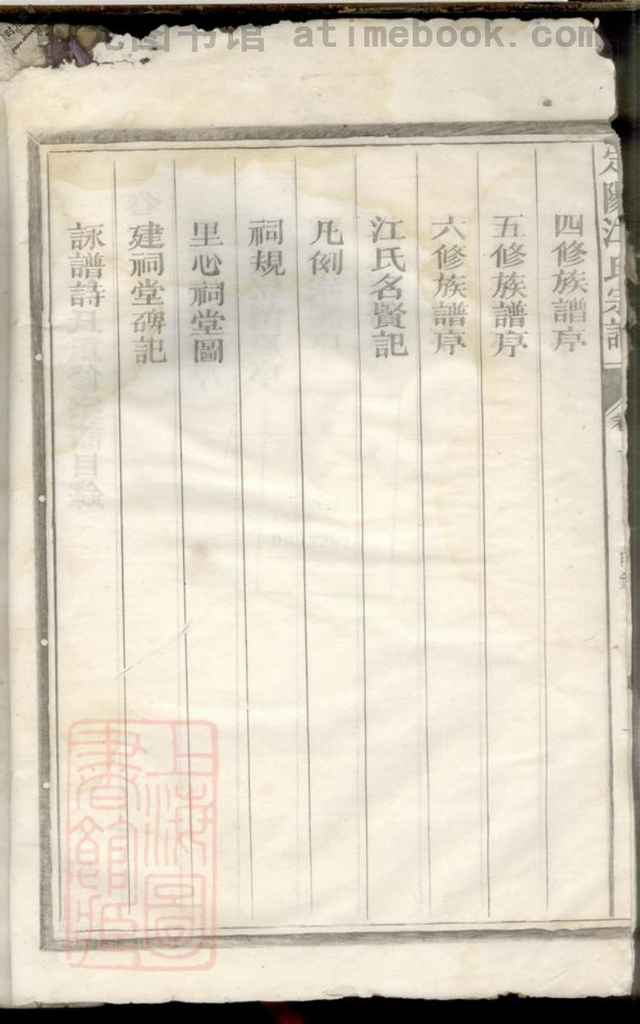 图书馆 atimebook.com
定陽江氏宗譜
四修族譜序
五修族譜序
六修族譜序
江氏名賢記
凡例
祠規
里心祠堂圖
建祠堂碑記
詠譜詩
上海圖
書館藏